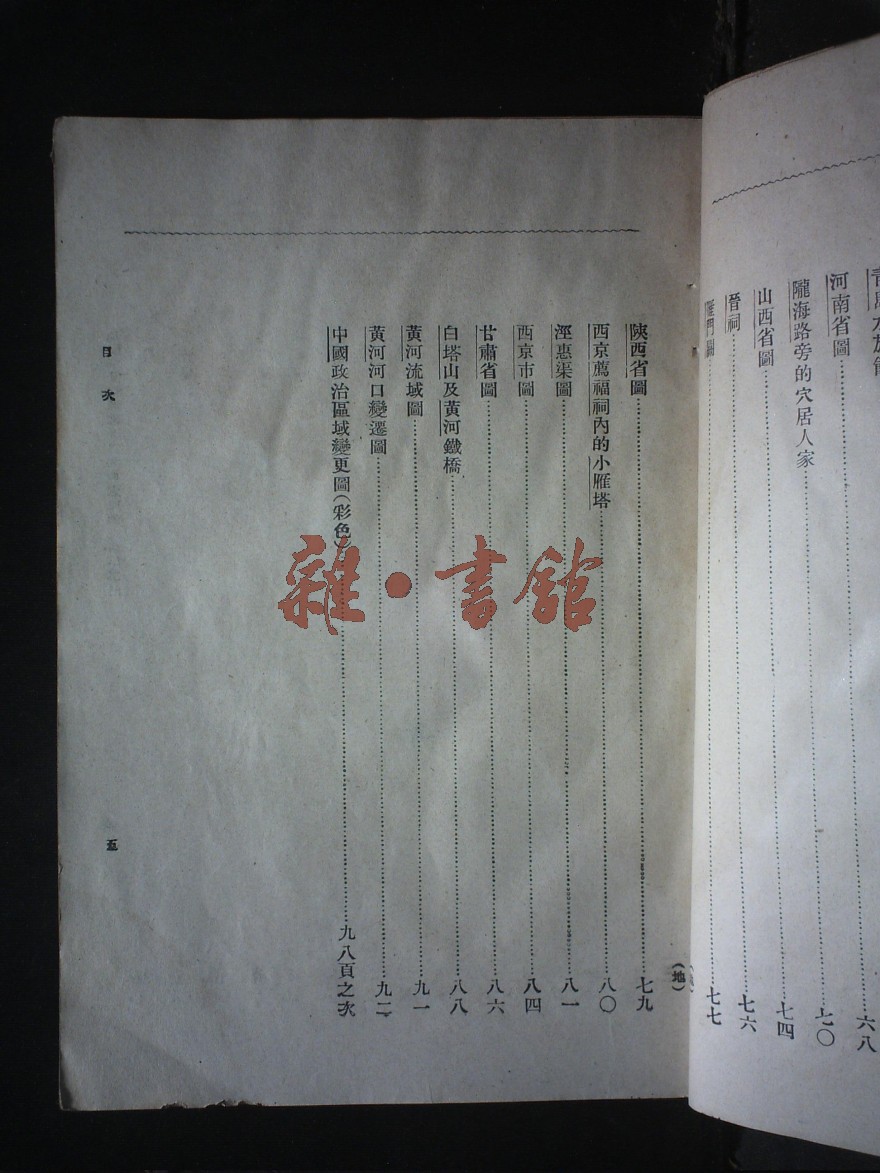 河南省圖……六八
隴海路旁的穴居人家……七〇
山西省圖……七四
晉祠……七六
雁門關……七七
(地)
陝西省圖……七九
西京薦福祠內的小雁塔……八〇
涇惠渠圖……八一
西京市圖……八四
甘肅省圖……八六
白塔山及黃河鐵橋……八八
黃河流域圖……九一
黃河河口變遷圖……九二
中國政治區域變更圖(彩色)……九八頁之次
目次
五
雜·書館